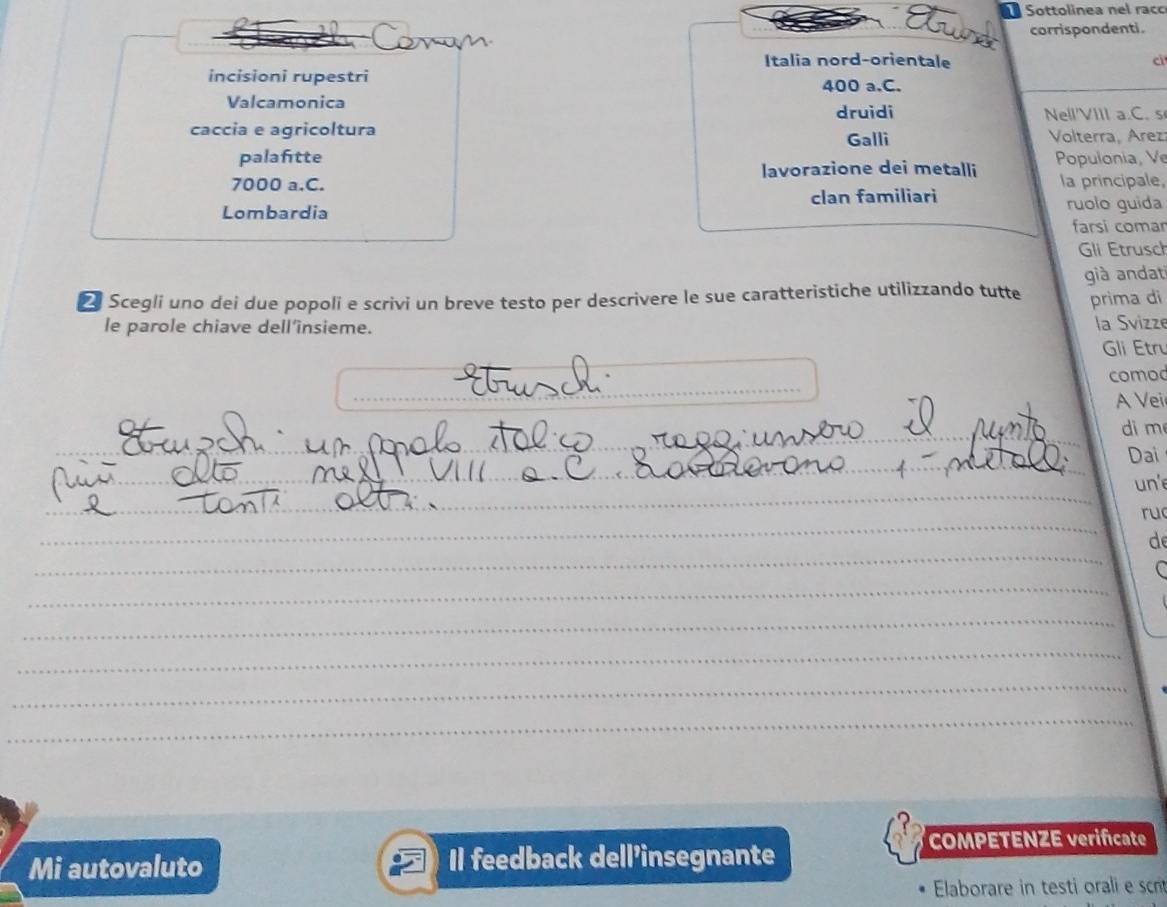 Camun
incisioni rupestri
Valcamonica
caccia e agricoltura
palafitte
7000 a.C.
Lombardia
Italia nord-orientale
400 a.C.
druidi
Galli
lavorazione dei metalli
clan familiari
2 Scegli uno dei due popoli e scrivi un breve testo per descrivere le sue caratteristiche utilizzando tutte
le parole chiave dell'insieme.
etruschi
Etruschi un popolo italico raggiunsero il punto
più alto nell VIII a.C. metalli
e tanti altri.
1 Sottolinea nel racc
corrispondenti.
cit
Nell'VIII a.C. s
Volterra, Arez
Populonia, Ve
la principale,
ruolo guida
farsi comar
Gli Etrusch
già andati
prima di
la Svizze
Gli Etru
comod
A Vei
di m
Dai
un'e
ruc
de
Mi autovaluto
Il feedback dell'insegnante
COMPETENZE verificate
• Elaborare in testi orali e scrit